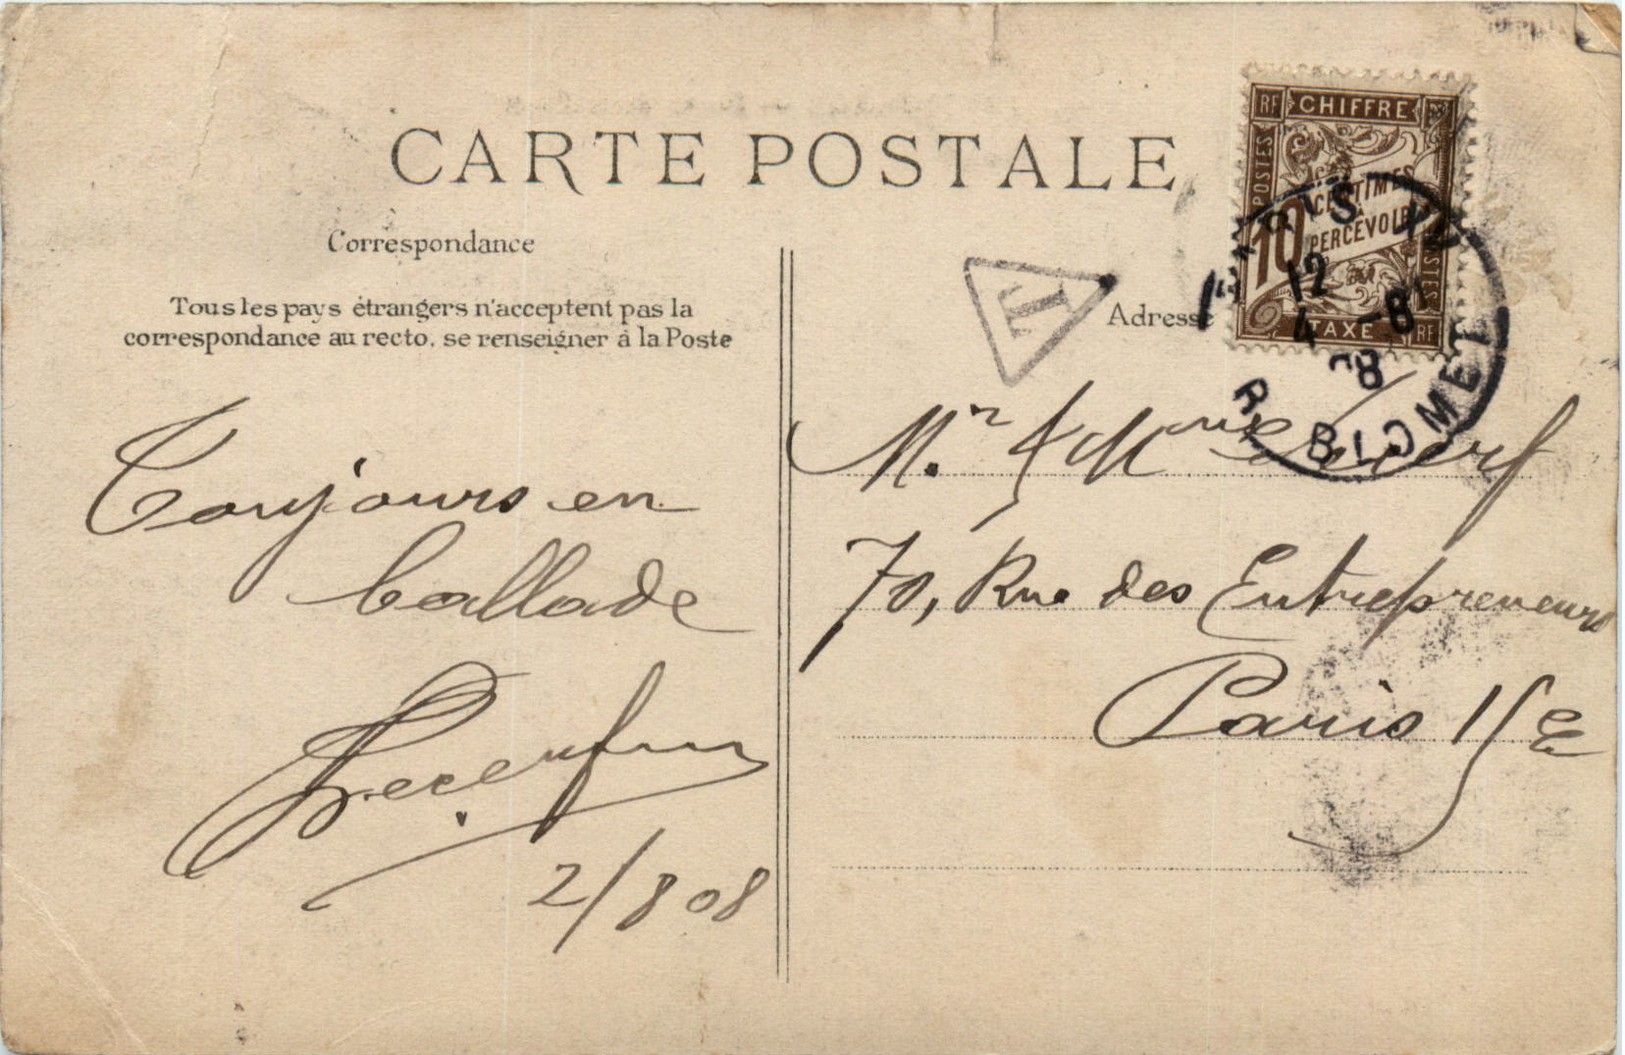 CARTE POSTALE
Correspondance
Tous les pays étrangers n'acceptent pas la
correspondance au recto, se renseigner à la Poste
Toujours en
ballade
Lecerf
2/8 08
T
Adresse
RF CHIFFRE
POSTES
10 CENTIMES
À
PERCEVOIR
POSTES
TAXE RF
PARIS XV
12
4 -8
08
R. BLOMET
Mr & Mme Lecerf
70, Rue des Entrepreneurs
Paris 15E